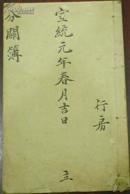 行
宣統元年春月吉日 立
分關簿